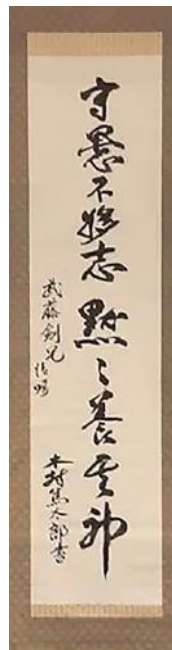 守愚不移志黙々養其神
武藤剣兄清嘱
木村篤太郎書